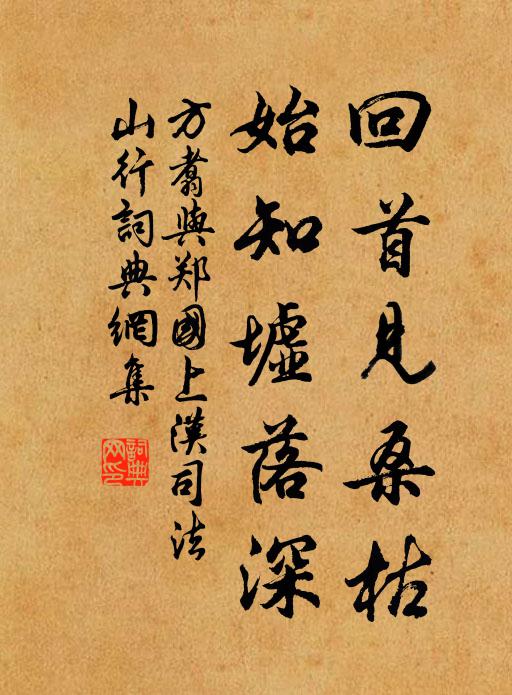 回首見桑枯
始知墟落深
方翥與郑國上漢司法
山行詞典網集
詞典網印